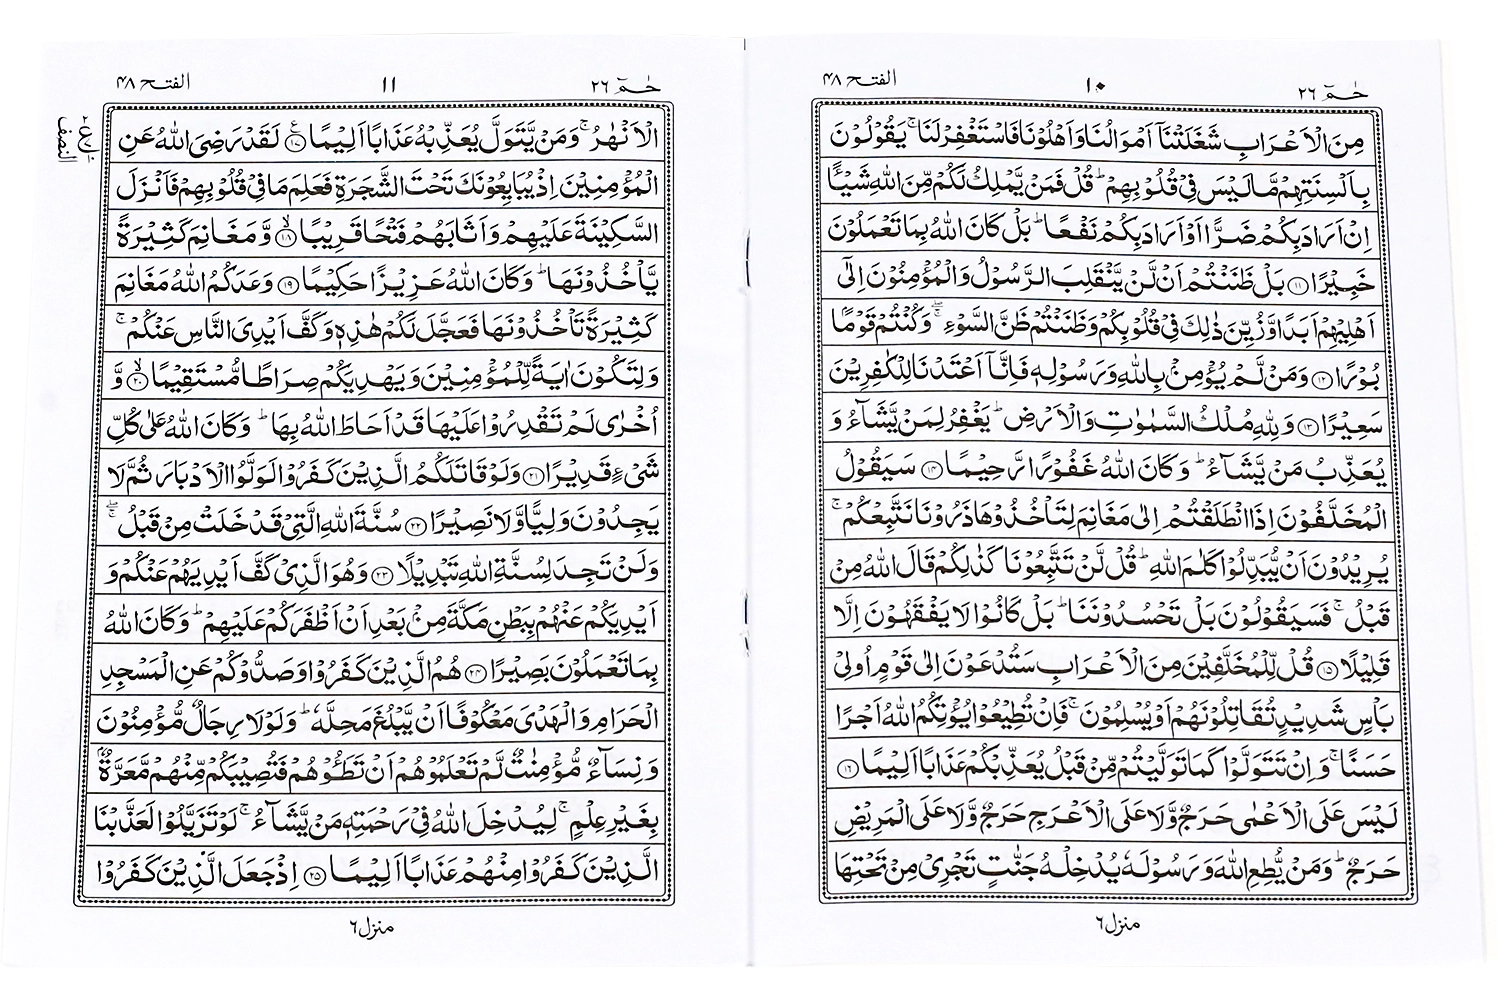 حٰمٓ ٢٦
١٠
الفتح ٤٨
مِنَ الْاَعْرَابِ شَغَلَتْنَاۤ اَمْوَالُنَا وَاَهْلُوْنَا فَاسْتَغْفِرْ لَنَا ۚ يَقُوْلُوْنَ
بِاَلْسِنَتِهِمْ مَّا لَيْسَ فِىْ قُلُوْبِهِمْ ؕ قُلْ فَمَنْ يَّمْلِكُ لَكُمْ مِّنَ اللّٰهِ شَيْـًٔا
اِنْ اَرَادَ بِكُمْ ضَرًّا اَوْ اَرَادَ بِكُمْ نَفْعًا ؕ بَلْ كَانَ اللّٰهُ بِمَا تَعْمَلُوْنَ
خَبِيْرًا ۝١١ بَلْ ظَنَنْتُمْ اَنْ لَّنْ يَّنْقَلِبَ الرَّسُوْلُ وَالْمُؤْمِنُوْنَ اِلٰٓى
اَهْلِيْهِمْ اَبَدًا وَّزُيِّنَ ذٰلِكَ فِىْ قُلُوْبِكُمْ وَظَنَنْتُمْ ظَنَّ السَّوْءِ ۖۚ وَكُنْتُمْ قَوْمًۢا
بُوْرًا ۝١٢ وَمَنْ لَّمْ يُؤْمِنْۢ بِاللّٰهِ وَرَسُوْلِهٖ فَاِنَّاۤ اَعْتَدْنَا لِلْكٰفِرِيْنَ
سَعِيْرًا ۝١٣ وَلِلّٰهِ مُلْكُ السَّمٰوٰتِ وَالْاَرْضِ ؕ يَغْفِرُ لِمَنْ يَّشَآءُ وَ
يُعَذِّبُ مَنْ يَّشَآءُ ؕ وَكَانَ اللّٰهُ غَفُوْرًا رَّحِيْمًا ۝١٤ سَيَقُوْلُ
الْمُخَلَّفُوْنَ اِذَا انْطَلَقْتُمْ اِلٰى مَغَانِمَ لِتَاْخُذُوْهَا ذَرُوْنَا نَتَّبِعْكُمْ ۚ
يُرِيْدُوْنَ اَنْ يُّبَدِّلُوْا كَلٰمَ اللّٰهِ ؕ قُلْ لَّنْ تَتَّبِعُوْنَا كَذٰلِكُمْ قَالَ اللّٰهُ مِنْ
قَبْلُ ۚ فَسَيَقُوْلُوْنَ بَلْ تَحْسُدُوْنَنَا ؕ بَلْ كَانُوْا لَا يَفْقَهُوْنَ اِلَّا
قَلِيْلًا ۝١٥ قُلْ لِّلْمُخَلَّفِيْنَ مِنَ الْاَعْرَابِ سَتُدْعَوْنَ اِلٰى قَوْمٍ اُولِىْ
بَاْسٍ شَدِيْدٍ تُقَاتِلُوْنَهُمْ اَوْ يُسْلِمُوْنَ ۚ فَاِنْ تُطِيْعُوْا يُؤْتِكُمُ اللّٰهُ اَجْرًا
حَسَنًا ۚ وَاِنْ تَتَوَلَّوْا كَمَا تَوَلَّيْتُمْ مِّنْ قَبْلُ يُعَذِّبْكُمْ عَذَابًا اَلِيْمًا ۝١٦
لَيْسَ عَلَى الْاَعْمٰى حَرَجٌ وَّلَا عَلَى الْاَعْرَجِ حَرَجٌ وَّلَا عَلَى الْمَرِيْضِ
حَرَجٌ ؕ وَمَنْ يُّطِعِ اللّٰهَ وَرَسُوْلَهٗ يُدْخِلْهُ جَنّٰتٍ تَجْرِىْ مِنْ تَحْتِهَا
منزل ٦
حٰمٓ ٢٦
١١
الفتح ٤٨
الْاَنْهٰرُ ۚ وَمَنْ يَّتَوَلَّ يُعَذِّبْهُ عَذَابًا اَلِيْمًا ۝١٧ لَقَدْ رَضِىَ اللّٰهُ عَنِ
الْمُؤْمِنِيْنَ اِذْ يُبَايِعُوْنَكَ تَحْتَ الشَّجَرَةِ فَعَلِمَ مَا فِىْ قُلُوْبِهِمْ فَاَنْزَلَ
السَّكِيْنَةَ عَلَيْهِمْ وَاَثَابَهُمْ فَتْحًا قَرِيْبًا ۝١٨ وَّمَغَانِمَ كَثِيْرَةً
يَّاْخُذُوْنَهَا ؕ وَكَانَ اللّٰهُ عَزِيْزًا حَكِيْمًا ۝١٩ وَعَدَكُمُ اللّٰهُ مَغَانِمَ
كَثِيْرَةً تَاْخُذُوْنَهَا فَعَجَّلَ لَكُمْ هٰذِهٖ وَكَفَّ اَيْدِىَ النَّاسِ عَنْكُمْ ۚ
وَلِتَكُوْنَ اٰيَةً لِّلْمُؤْمِنِيْنَ وَيَهْدِيَكُمْ صِرَاطًا مُّسْتَقِيْمًا ۝٢٠ وَّ
اُخْرٰى لَمْ تَقْدِرُوْا عَلَيْهَا قَدْ اَحَاطَ اللّٰهُ بِهَا ؕ وَكَانَ اللّٰهُ عَلٰى كُلِّ
شَىْءٍ قَدِيْرًا ۝٢١ وَلَوْ قَاتَلَكُمُ الَّذِيْنَ كَفَرُوْا لَوَلَّوُا الْاَدْبَارَ ثُمَّ لَا
يَجِدُوْنَ وَلِيًّا وَّلَا نَصِيْرًا ۝٢٢ سُنَّةَ اللّٰهِ الَّتِىْ قَدْ خَلَتْ مِنْ قَبْلُ ۖۚ
وَلَنْ تَجِدَ لِسُنَّةِ اللّٰهِ تَبْدِيْلًا ۝٢٣ وَهُوَ الَّذِىْ كَفَّ اَيْدِيَهُمْ عَنْكُمْ وَ
اَيْدِيَكُمْ عَنْهُمْ بِبَطْنِ مَكَّةَ مِنْۢ بَعْدِ اَنْ اَظْفَرَكُمْ عَلَيْهِمْ ؕ وَكَانَ اللّٰهُ
بِمَا تَعْمَلُوْنَ بَصِيْرًا ۝٢٤ هُمُ الَّذِيْنَ كَفَرُوْا وَصَدُّوْكُمْ عَنِ الْمَسْجِدِ
الْحَرَامِ وَالْهَدْىَ مَعْكُوْفًا اَنْ يَّبْلُغَ مَحِلَّهٗ ؕ وَلَوْلَا رِجَالٌ مُّؤْمِنُوْنَ
وَنِسَآءٌ مُّؤْمِنٰتٌ لَّمْ تَعْلَمُوْهُمْ اَنْ تَطَـُٔوْهُمْ فَتُصِيْبَكُمْ مِّنْهُمْ مَّعَرَّةٌۢ
بِغَيْرِ عِلْمٍ ۚ لِيُدْخِلَ اللّٰهُ فِىْ رَحْمَتِهٖ مَنْ يَّشَآءُ ۚ لَوْ تَزَيَّلُوْا لَعَذَّبْنَا
الَّذِيْنَ كَفَرُوْا مِنْهُمْ عَذَابًا اَلِيْمًا ۝٢٥ اِذْ جَعَلَ الَّذِيْنَ كَفَرُوْا
النصف
منزل ٦